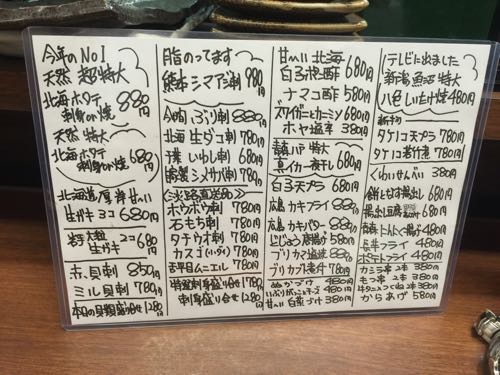 今年のNo1
天然 超特大
北海ホタテ
刺身or焼 880円
天然 特大
北海ホタテ
刺身or焼 680円
北海道厚岸甘〜い
生ガキ 3コ 680円
岩手大粒
生ガキ 2コ 680円
赤貝刺 850円
ミル貝刺 780円
本日の貝類盛り合せ 1280円
脂のってます
熊本シマアジ刺 980円
ぶり刺 880円
北海 生ダコ刺 780円
千葉 いわし刺 780円
自家製シメサバ刺 780円
淡路直送品
ホウボウ刺 780円
石もち刺 780円
タチウオ刺 780円
カスゴ(小ダイ)刺 780円
舌平目ムニエル 780円
特選刺身盛り合せ 1780円
刺身盛り合せ 1280円
甘〜い北海
白子ポン酢 680円
ナマコ酢 580円
ズワイガニとカニミソ 680円
ホヤ塩辛 380円
青森八戸 特大
真イカ一夜干し 680円
白子天ぷら 680円
広島 カキフライ 880円
広島 カキバター 880円
じじょう 唐揚げ 580円
ブリカマ塩焼 780円
ブリカブト煮付 780円
ぬかづけ 480円
いぶりがっことチーズ 480円
甘〜い 白菜づけ 380円
テレビに出ました
新潟魚沼 特大
八色しいたけ焼 480円
新竹の子
タケノコ天ぷら 780円
タケノコ若竹煮 780円
くわいせんべい 380円
餅となす揚出し 680円
揚出し豆腐 680円
青森 にんにく揚げ 480円
長芋フライ 480円
ポテトフライ 480円
カシラ串 2本 380円
もつ串 2本 380円
牛タン入つくね 2本 380円
からあげ 580円